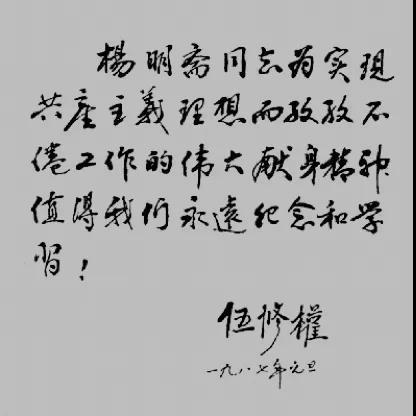 楊明斋同志为实現
共產主義理想而孜孜不
倦工作的伟大献身精神
值得我们永遠纪念和学
習！
伍修權
一九八七年元旦